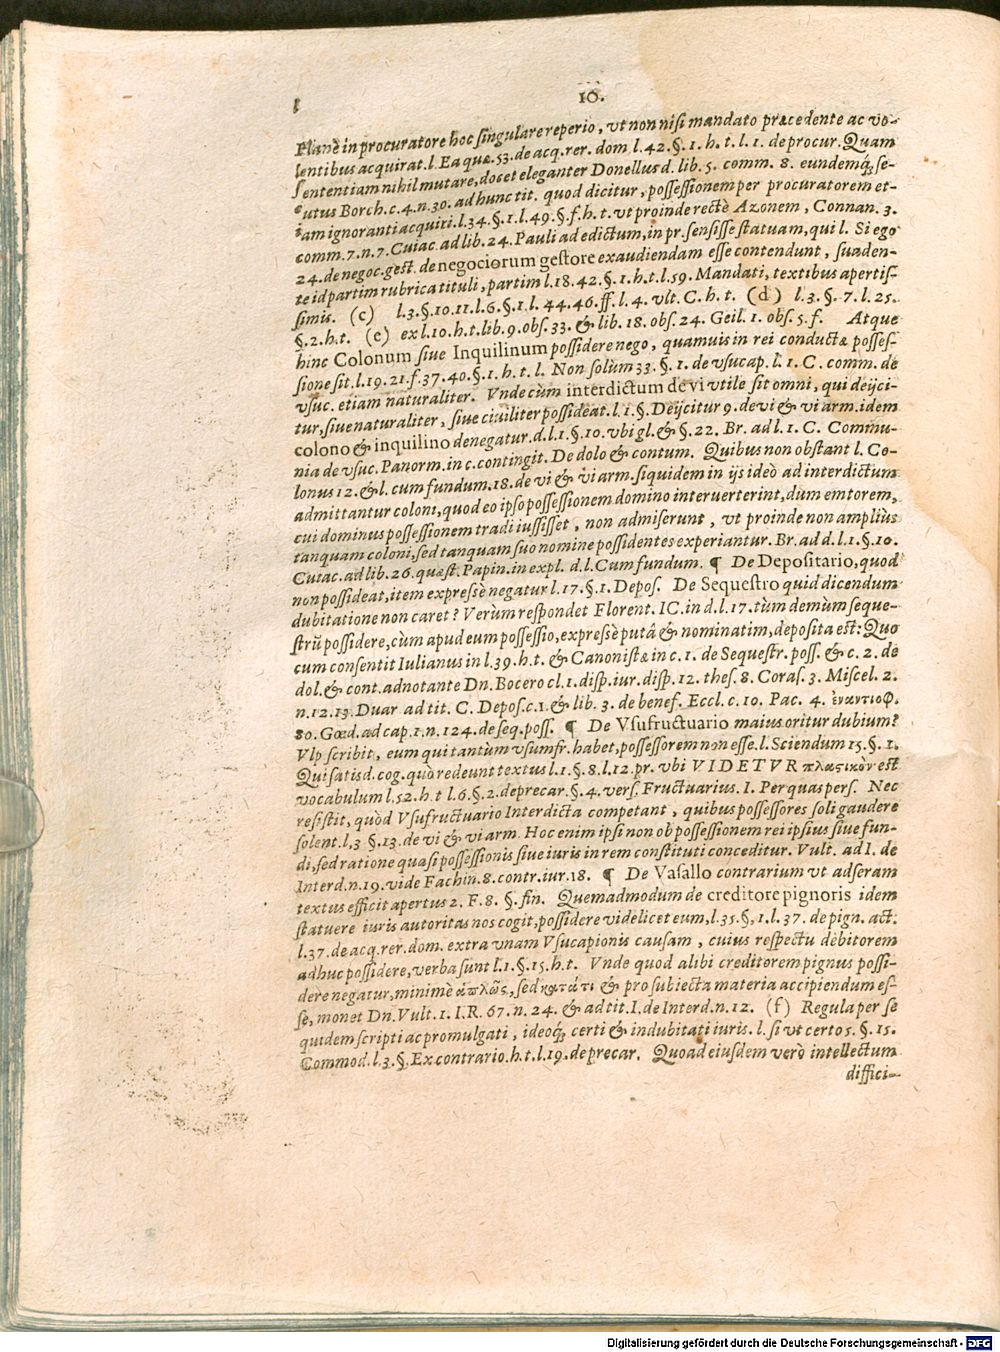 10.
Planè in procuratore hoc singulare reperio, vt non nisi mandato præcedente ac vo-
lentibus acquirat. l. Ea quæ. 53. de acq. rer. dom l. 42. §. 1. h. t. l. 1. de procur. Quam
sententiam nihil mutare, docet eleganter Donellus d. lib. 5. comm. 8. eundemq́; se-
cutus Borch. c. 4. n. 30. ad hunc tit. quod dicitur, possessionem per procuratorem et-
iam ignoranti acquiri. l. 34. §. 1. l. 49. §. f. h. t. vt proinde rectè Azonem, Connan. 3.
comm. 7. n. 7. Cuiac. ad lib. 24. Pauli ad edictum, in pr. sensisse statuam, qui l. Si ego
24. de negoc. gest. de negociorum gestore exaudiendam esse contendunt, suaden-
te id partim rubrica tituli, partim l. 18. 42. §. 1. h. t. l. 59. Mandati, textibus apertis-
simis. (c) l. 3. §. 10. 11. l. 6. §. 1. l. 44. 46. ff. l. 4. vlt. C. h. t. (d) l. 3. §. 7. l. 25.
§. 2. h. t. (e) ex l. 10. h. t. lib. 9. obs. 33. & lib. 18. obs. 24. Geil. 1. obs. 5. f. Atque
hinc Colonum siue Inquilinum possidere nego, quamuis in rei conductæ posses-
sione sit. l. 19. 21. f. 37. 40. §. 1. h. t. l. Non solùm 33. §. 1. de vsucap. l. 1. C. comm. de
vsuc. etiam naturaliter. Vnde cùm interdictum de vi vtile sit omni, qui deijci-
tur, siue naturaliter, siue ciuiliter possideat. l. 1. §. Deijcitur 9. de vi & vi arm. idem
colono & inquilino denegatur. d. l. 1. §. 10. vbi gl. & §. 22. Br. ad l. 1. C. Commu-
nia de vsuc. Panorm. in c. contingit. De dolo & contum. Quibus non obstant l. Co-
lonus 12. & l. cum fundum. 18. de vi & vi arm. siquidem in ijs ideò ad interdictum
admittantur coloni, quod eo ipso possessionem domino interuerterint, dum emtorem,
cui dominus possessionem tradi iussisset, non admiserunt, vt proinde non ampliùs
tanquam coloni, sed tanquam suo nomine possidentes experiantur. Br. ad d. l. 1. §. 10.
Cuiac. ad lib. 26. quæst. Papin. in expl. d. l. Cum fundum. ¶ De Depositario, quod
non possideat, item expressè negatur l. 17. §. 1. Depos. De Sequestro quid dicendum
dubitatione non caret? Verùm respondet Florent. IC. in d. l. 17. tùm demùm seque-
strũ possidere, cùm apud eum possessio, expressè putâ & nominatim, deposita est: Quo
cum consentit Iulianus in l. 39. h. t. & Canonistæ in c. 1. de Sequestr. poss. & c. 2. de
dol. & cont. adnotante Dn. Bocero cl. 1. disp. iur. disp. 12. thes. 8. Coras. 3. Miscel. 2.
n. 12. 13. Duar ad tit. C. Depos. c. 1. & lib. 3. de benef. Eccl. c. 10. Pac. 4. ἐναντιοφ.
80. Gœd. ad cap. 1. n. 124. de seq. poss. ¶ De Vsufructuario maius oritur dubium?
Vlp scribit, eum qui tantùm vsumfr. habet, possessorem non esse. l. Sciendum 15. §. 1.
Qui satisd. cog. quò redeunt textus l. 1. §. 8. l. 12. pr. vbi VIDETVR πλαςικὸν est
vocabulum l. 52. h. t l. 6. §. 2. de precar. §. 4. vers. Fructuarius. I. Per quas pers. Nec
resistit, quòd Vsufructuario Interdicta competant, quibus possessores soli gaudere
solent. l, 3 §. 13. de vi & vi arm. Hoc enim ipsi non ob possessionem rei ipsius siue fun-
di, sed ratione quasi possessionis siue iuris in rem constituti conceditur. Vult. ad l. de
Interd. n. 19. vide Fachin. 8. contr. iur. 18. ¶ De Vasallo contrarium vt adseram
textus efficit apertus 2. F. 8. §. fin. Quemadmodum de creditore pignoris idem
statuere iuris autoritas nos cogit, possidere videlicet eum, l. 35. §, 1. l. 37. de pign. act.
l. 37. de acq. rer. dom. extra vnam Vsucapionis causam, cuius respectu debitorem
adhuc possidere, verba sunt l. 1. §. 15. h. t. Vnde quod alibi creditorem pignus possi-
dere negatur, minimè ἁπλῶς, sed κατά τι & pro subiecta materia accipiendum es-
se, monet Dn. Vult. 1. I. R. 67. n. 24. & ad tit. I. de Interd. n. 12. (f) Regula per se
quidem scripti ac promulgati, ideoq́; certi & indubitati iuris. l. si vt certo 5. §. 15.
Commod. l. 3. §. Ex contrario. h. t. l. 19. de precar. Quoad eiusdem verò intellectum
diffici-
Digitalisierung gefördert durch die Deutsche Forschungsgemeinschaft - DFG